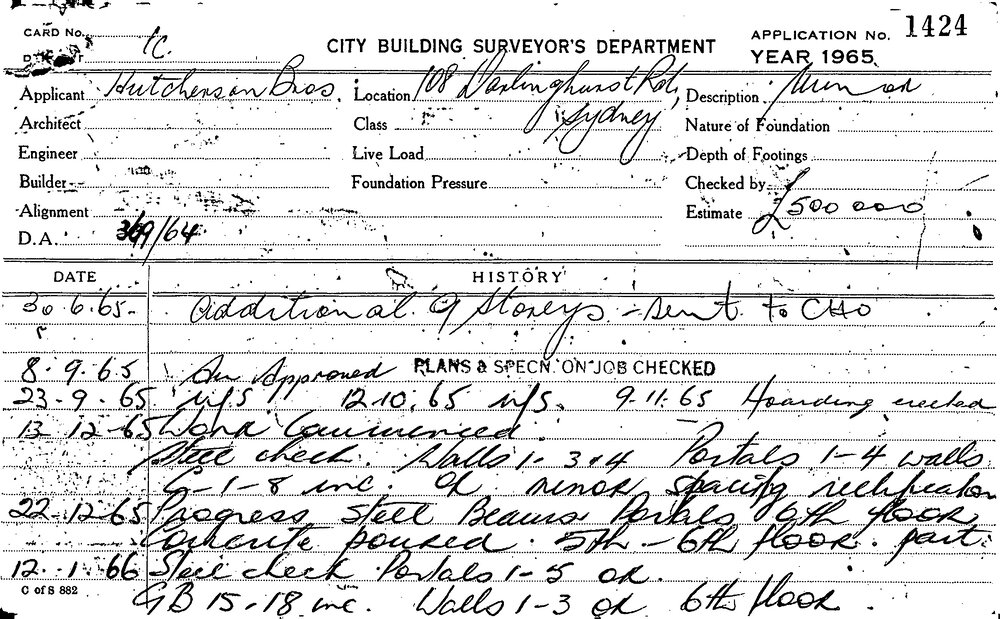 CARD No.
CITY BUILDING SURVEYOR'S DEPARTMENT
APPLICATION No. 1424
YEAR 1965
Applicant Hutcherson Bros. Location 108 Darlinghurst Rd, Sydney Description
Architect Class Nature of Foundation
Engineer Live Load Depth of Footings
Builder Foundation Pressure Checked by
Alignment Estimate £500 000
D.A. 369/64
DATE HISTORY
30.6.65 Additional 9 Storeys - sent to CHO
8.9.65 Approved PLANS & SPECN. ON JOB CHECKED
23.9.65 n/s 12.10.65 n/s. 9.11.65 Hoarding erected
13.12.65 Work Commenced.
Steel check. Walls 1- 3+4 Portals 1-4 walls
G-1-8 inc. OK minor spacing rectification
22.12.65 Progress Steel Beams Portals 6th floor
Concrete poured. 5th-6th floor. part.
12.1.66 Steel check Portals 1-5 OK.
GB 15-18 inc. Walls 1-3 OK 6th floor.
C of S 882